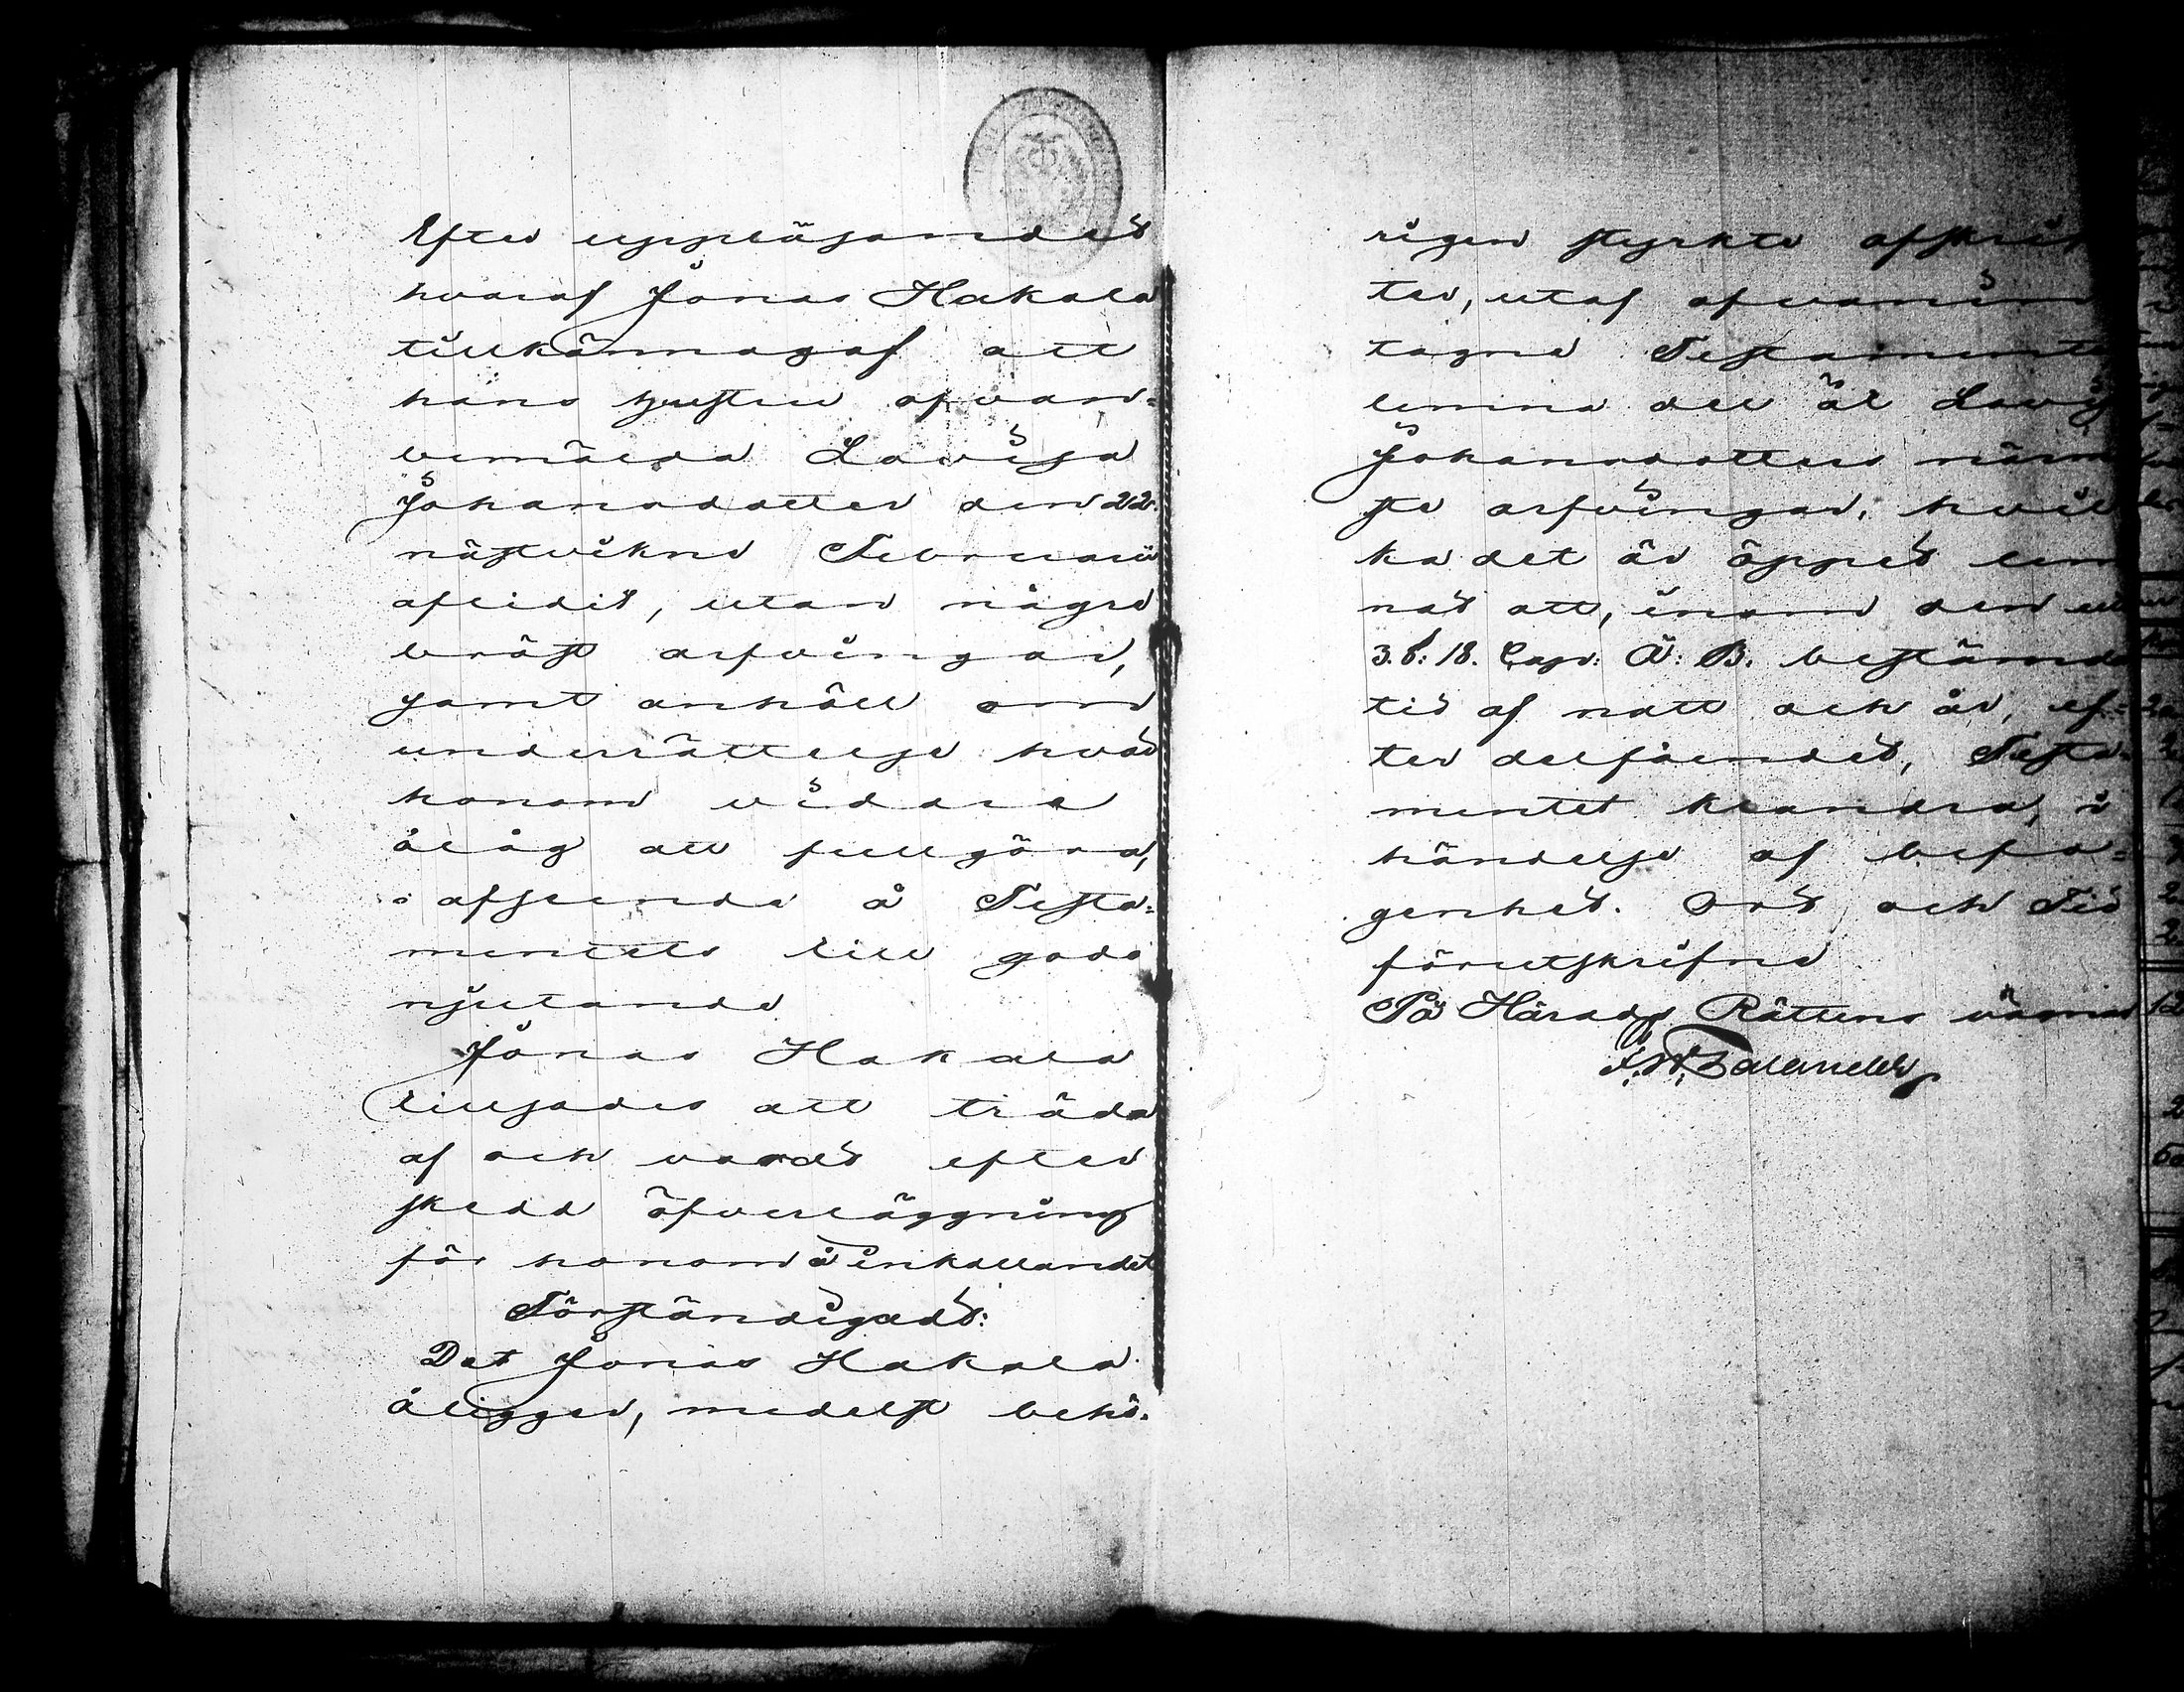 Efter uppläsandet
hvaraf Jonas Hakala
tillkännagaf att
hans hustru ofvan-
bemälda Lovisa
Johansdotter den 22
nästvikne Februarii
aflidit, utan några
bröst arfvingar,
samt anhöll om
underrättelse hvad
honom vidare
ålåg att fullgöra,
i afseende å Testa-
mentets till godo
njutande
Jonas Hakala
tillsades att träda
af och vardt efter
skedd öfverläggning
för honom å inkallandet
Förständigadt:
Det Jonas Hakala
åligger, medelst behö-
rigen styrkte afskrif
ter, utaf ofvanin
tagne Testamente
lemna del åt Lovis
Johansdotters närm
ste arfvingar, hvil
ka det är öppet lem
nat att, inom den uti
3. §: 18. Cap: Ä: B. bestämde
tid af natt och år, ef-
ter delfåendet, Testa-
mentet klandra, i
händelse af befo-
genhet. Ort och Tid
förutskrifne
På Härads Rättens vägnar